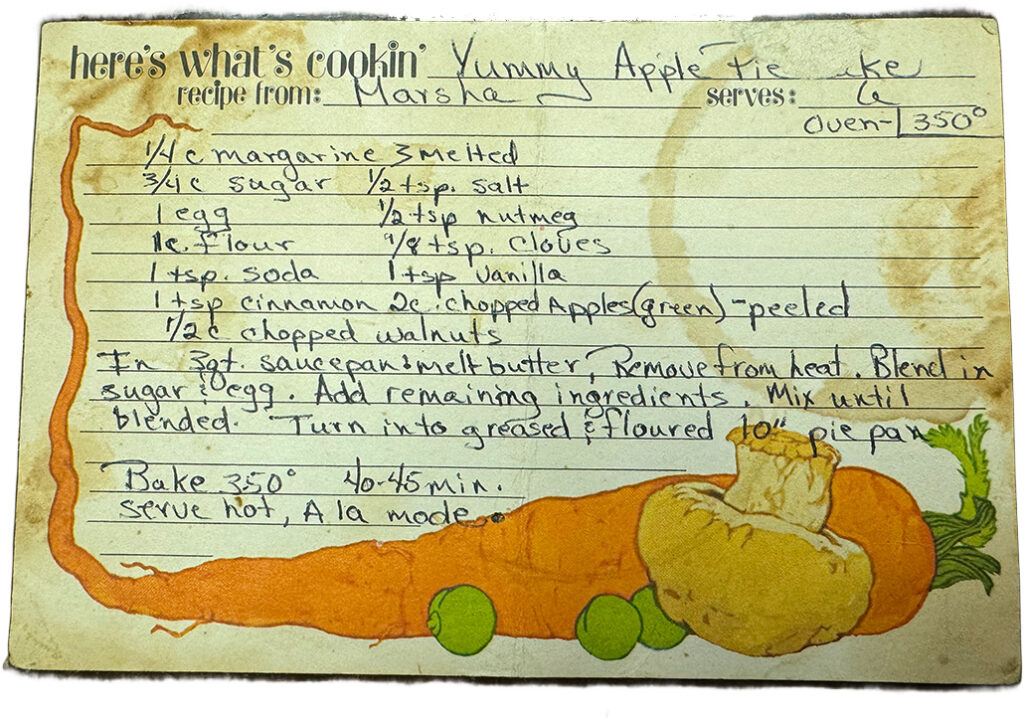 here's what's cookin' Yummy Apple Pie ke
recipe from: Marsha serves: 6
Oven- 350°
1/4 c margarine 3 melted
3/4 c sugar 1/2 tsp. salt
1 egg 1/2 tsp nutmeg
1c. flour 1/8 tsp. cloves
1 tsp. soda 1 tsp vanilla
1 tsp cinnamon 2c. chopped Apples (green) - peeled
1/2 c chopped walnuts
In 3qt. saucepan melt butter, Remove from heat. Blend in
sugar & egg. Add remaining ingredients. Mix until
blended. Turn into greased & floured 10" pie pan
Bake 350° 40-45 min.
serve hot, A la mode.